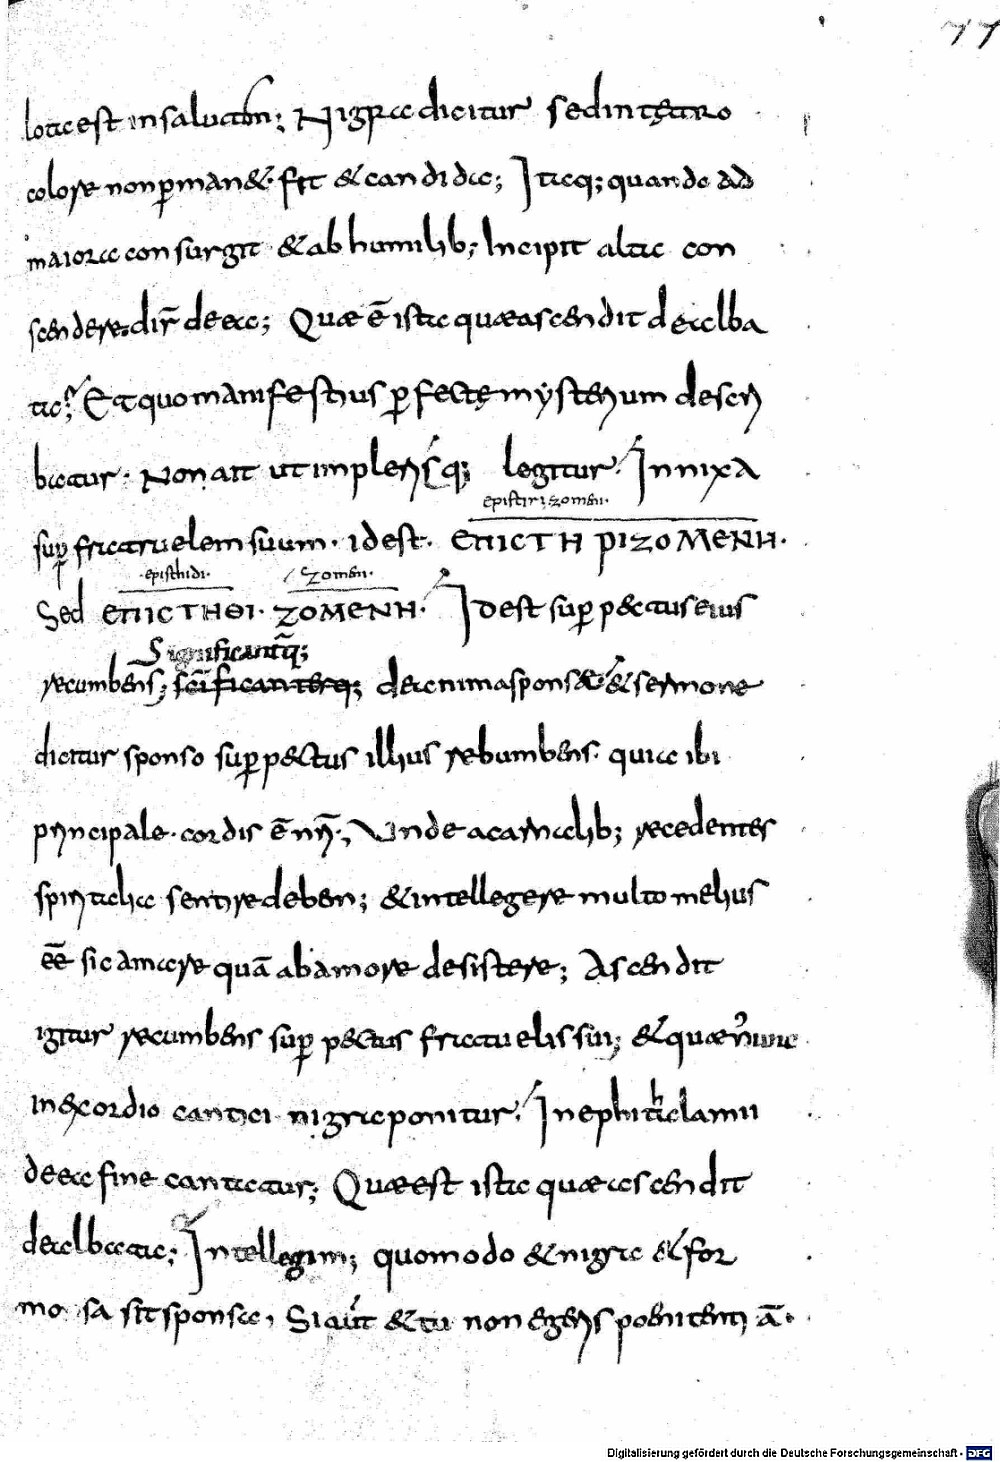 77
lota est in salutem; Nigra dicitur sed in tętro
colore non ꝑman&. fit & candida; Itaq; quando ad
maiora consurgit & ab humilib; Incipit alta con
scendere. dir̄ de ea; Quæ ē ista quæ ascendit dealba
ta; Et quo manifestius ꝑfectę mysterium descri
batur. Non ait ut in pleriſq; legitur. Innixa
suꝑ fratruelem suum. idest. ЄΠICTH ΡIZOMЄNH.
epistirizomeni.
Sed ЄΠICTHΘI. ZOMЄNH. Idest suꝑ pectus eius
episthidi. zomeni.
recumbens; Significantq;
de anima sponsæ & sermone
dicitur sponso suꝑ pectus illius recumbens. quia ibi
principale cordis ē nr̄i; Unde a carnalib; recedentes
spiritalia sentire deben; & intellegere multo melius
eē sic amare quā ab amore desistere; Ascendit
igitur recumbens suꝑ pectus fratruelis sui; & quæ nunc
in exordio cantici nigra ponitur. In ephithalamii
de ea fine cantatur; Quæ est ista quæ ascendit
dealbata; Intellegim; quomodo & nigra & for
mosa sit sponsa, Si aut & tu non egeris poenitentiā.
Digitalisierung gefördert durch die Deutsche Forschungsgemeinschaft - DFG